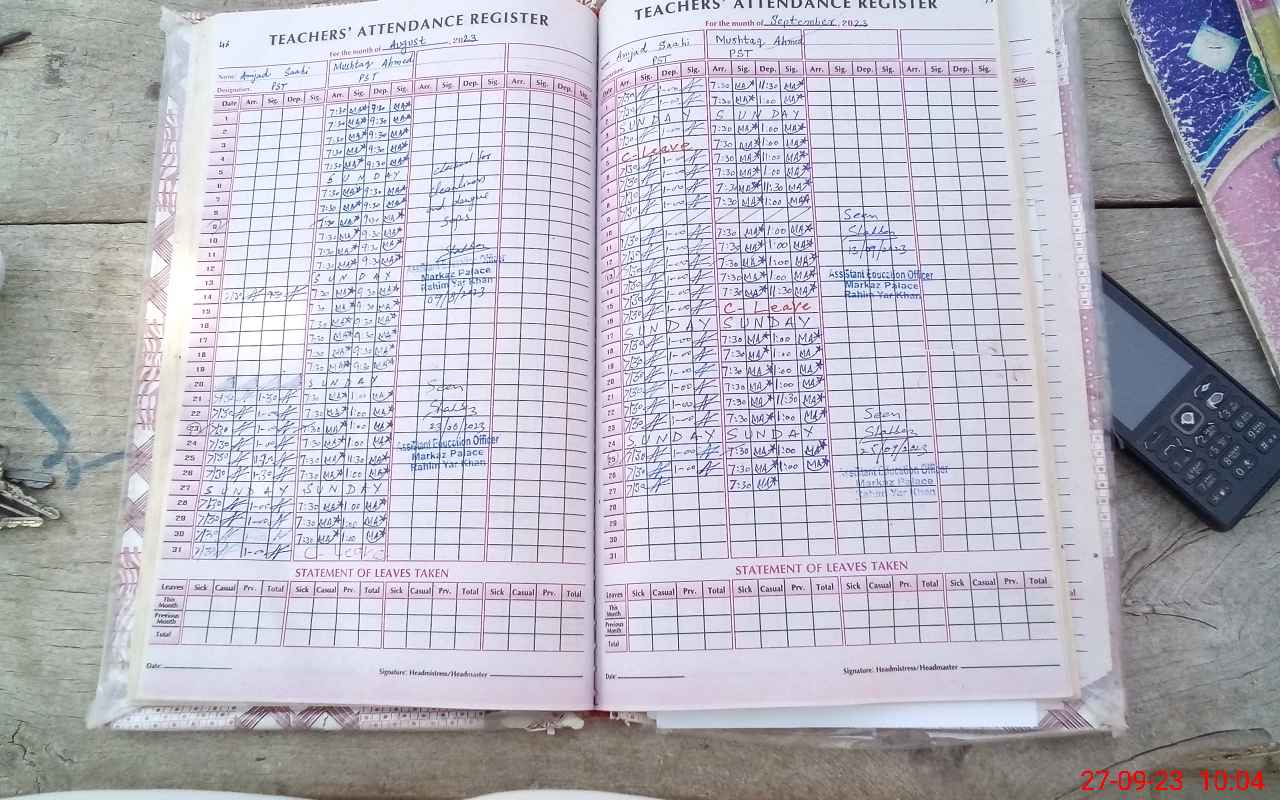 46
TEACHERS' ATTENDANCE REGISTER
For the month of August, 2023
Name: Amjad Saahi
Mushtaq Ahmed
Designation: PST
PST
Date Arr. Sig. Dep. Sig. Arr. Sig. Dep. Sig. Arr. Sig. Dep. Sig. Arr. Sig. Dep. Sig.
1 7:30 MA 9:30 MA
2 7:30 MA 9:30 MA
3 7:30 MA 9:30 MA
4 7:30 MA 9:30 MA
5 7:30 MA 9:30 MA
6 SUNDAY
7 7:30 MA 9:30 MA
8 7:30 MA 9:30 MA
9 7:30 MA 9:30 MA
10 7:30 MA 9:30 MA
11 7:30 MA 9:30 MA
12 7:30 MA 9:30 MA
13 SUNDAY
14 7:30 MA 9:30 MA
15 MA 9:30 MA
16 7:30 MA 9:30 MA
17 7:30 MA 9:30 MA
18 7:30 MA 9:30 MA
19 7:30 MA 9:30 MA
20 SUNDAY
21 7/30 1-30 7:30 MA 1:00 MA
22 7/30 1-00 7:30 MA 1:00 MA
23 7/30 1-00 7:30 MA 1:00 MA
24 7/30 1-00 7:30 MA 1:00 MA
25 7/30 7:30 MA 11:30 MA
26 7/30 1-30 7:30 MA 1:00 MA
27 SUNDAY SUNDAY
28 7/30 1-00 7:30 MA 1:00 MA
29 7/30 1-00 7:30 MA 1:00 MA
30 7/30 7:30 MA 1:00 MA
31 7/30 1-00 C-Leave
for
and dengue
SOPs
Assistant Education Officer
Markaz Palace
Rahim Yar Khan
Seen
Assistant Education Officer
Markaz Palace
Rahim Yar Khan
STATEMENT OF LEAVES TAKEN
Leaves Sick Casual Prv. Total Sick Casual Prv. Total Sick Casual Prv. Total Sick Casual Prv. Total
This Month
Previous Month
Total
Date:
Signature: Headmistress/Headmaster
TEACHERS' ATTENDANCE REGISTER
For the month of September, 2023
Amjad Saahi
Mushtaq Ahmed
PST
PST
Date Arr. Sig. Dep. Sig. Arr. Sig. Dep. Sig. Arr. Sig. Dep. Sig. Arr. Sig. Dep. Sig.
7/30 1-00 7:30 MA 11:30 MA
7/30 1-00 7:30 MA 1:00 MA
SUNDAY SUNDAY
7/30 1-00 7:30 MA 1:00 MA
C-Leave 7:30 MA 1:00 MA
7/30 1-00 7:30 MA 11:00 MA
7/30 1-00 7:30 MA 1:00 MA
7/30 1-00 7:30 MA 11:30 MA
7/30 1-00 7:30 MA 1:00 MA
7/30 1-00 7:30 MA 1:00 MA
7/30 1-00 7:30 MA 1:00 MA
7/30 1-00 7:30 MA 1:00 MA
7/30 1-00 7:30 MA 1:00 MA
7/30 1-00 7:30 MA 11:30 MA
7/30 1-00 C-Leave
SUNDAY SUNDAY
7/30 1-00 7:30 MA 1:00 MA
7/30 1-00 7:30 MA 1:00 MA
7/30 1-00 7:30 MA 1:00 MA
7/30 1-00 7:30 MA 1:00 MA
7/30 1-00 7:30 MA 11:30 MA
7/30 1-00 7:30 MA 1:00 MA
SUNDAY SUNDAY
7/30 1-00 7:30 MA 1:00 MA
7/30 1-00 7:30 MA 1:00 MA
7/30 7:30 MA
28
29
30
31
Seen
13/09/2023
Assistant Education Officer
Markaz Palace
Rahim Yar Khan
Seen
25/09/2023
Assistant Education Officer
Markaz Palace
Rahim Yar Khan
STATEMENT OF LEAVES TAKEN
Leaves Sick Casual Prv. Total Sick Casual Prv. Total Sick Casual Prv. Total Sick Casual Prv. Total
This Month
Previous Month
Total
Date:
Signature: Headmistress/Headmaster
27-09-23 10:04